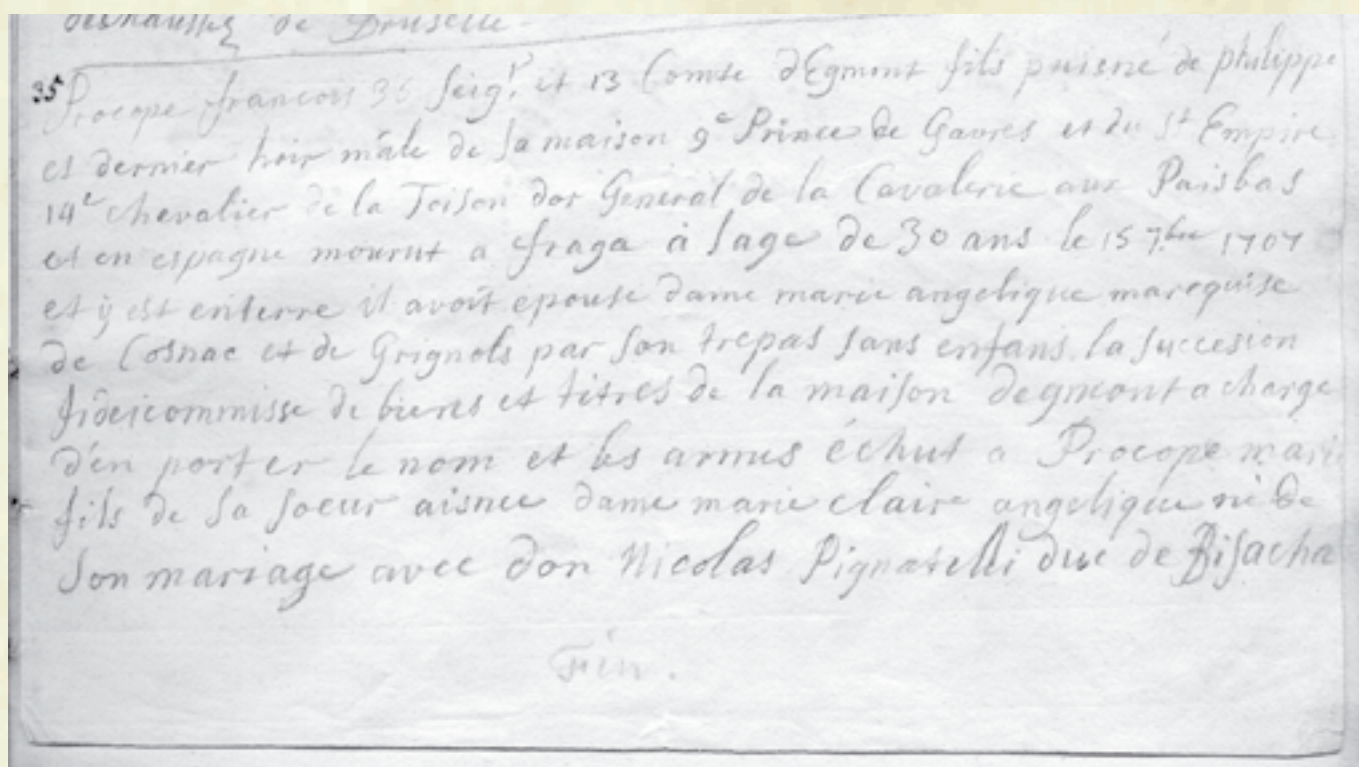 deshaussez de Bruselle
35 Procope francois 36 seigr et 13 Comte dEgmont fils puisné de philippe
et dernier hoir mâle de sa maison 9e Prince de Gavres et du St Empire
14e chevalier de la Toison dor General de la Cavalerie aux Paisbas
et en espagne mourut a fraga à lage de 30 ans le 15 7bre 1707
et y est enterre il avoit epouse dame marie angelique marquise
de Cosnac et de Grignols par son trepas sans enfans la succesion
fideicommisse de biens et titres de la maison degmont a charge
d'en porter le nom et les armes échut a Procope marie
fils de sa soeur aisnee dame marie claire angelique né de
son mariage avec don Nicolas Pignatelli duc de Bisacha
Fin.